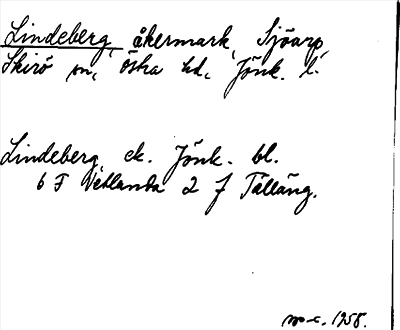 Lindeberg, åkermark, Sjöarp,
Skirö sn, östra hd, Jönk. l.
Lindeberg ek. Jönk. bl.
6 F Vetlanda 2 f Tälläng.
1958.